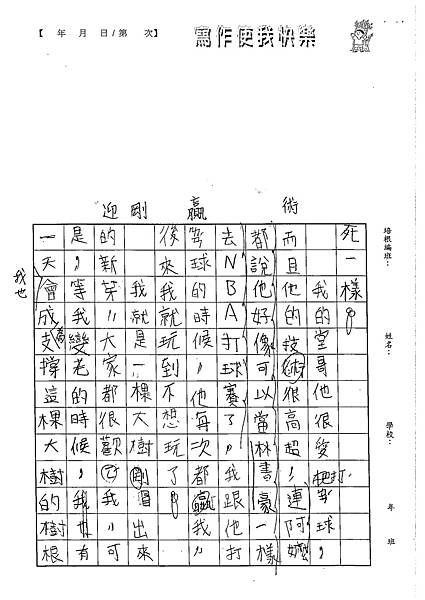 【 年 月 日/第 次】
寫作使我快樂
培根編班：
姓名：
學校：
年 班
迎 剛 贏 術
死一樣。
我的堂哥他很愛打球，
而且他的技術很高超，連阿嬤
都說他好像可以當林書豪一樣
去NBA打球賽了。我跟他一打
球的時候，他每次都贏我，
後來我就玩到不想玩了。
我就是一棵大樹剛冒出來
的新芽，大家都很歡迎我，可
是，等我變老的時候，我也有
一天會成為支撐這棵大樹的樹根
我也